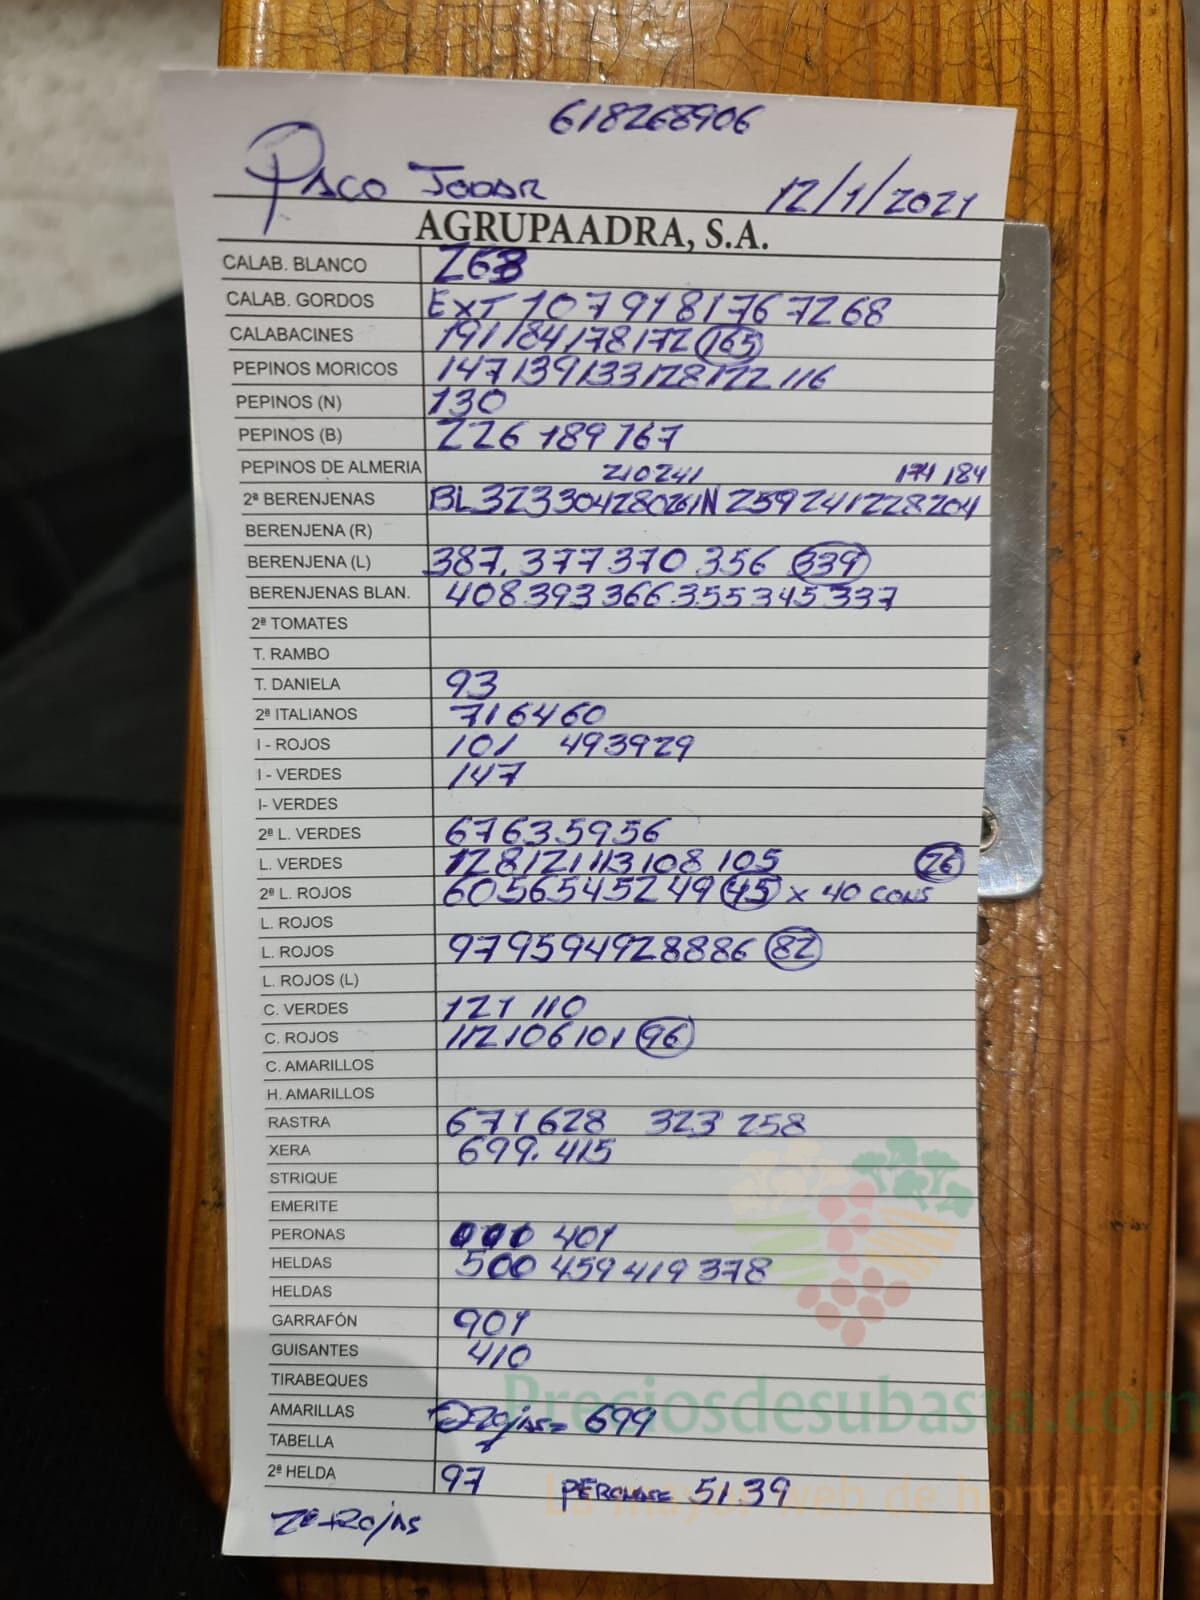 618268906
PACO JODAR 12/1/2021
AGRUPAADRA, S.A.
CALAB. BLANCO 268
CALAB. GORDOS EXT 107 91 81 76 72 68
CALABACINES 191 184 178 172 165
PEPINOS MORICOS 147 139 133 128 122 116
PEPINOS (N) 130
PEPINOS (B) 226 189 167
PEPINOS DE ALMERIA 210 241 174 184
2ª BERENJENAS BL 323 304 280 261 N 259 241 228 204
BERENJENA (R)
BERENJENA (L) 387. 377 370 356 339
BERENJENAS BLAN. 408 393 366 355 345 337
2ª TOMATES
T. RAMBO
T. DANIELA 93
2ª ITALIANOS 71 64 60
I - ROJOS 101 49 39 29
I - VERDES 147
I- VERDES
2ª L. VERDES 67 63 59 56
L. VERDES 128 121 113 108 105 26
2ª L. ROJOS 60 56 54 52 49 45 x 40 CONS
L. ROJOS
L. ROJOS 97 95 94 92 88 86 82
L. ROJOS (L)
C. VERDES 121 110
C. ROJOS 112 106 101 96
C. AMARILLOS
H. AMARILLOS
RASTRA 671 628 323 258
XERA 699. 415
STRIQUE
EMERITE
PERONAS 401
HELDAS 500 459 419 378
HELDAS
GARRAFÓN 901
GUISANTES 410
TIRABEQUES
Preciosdesubasta.com
AMARILLAS = 699
TABELLA
2ª HELDA 97 51 39
La mayor web de hortalizas
2ª ROJAS